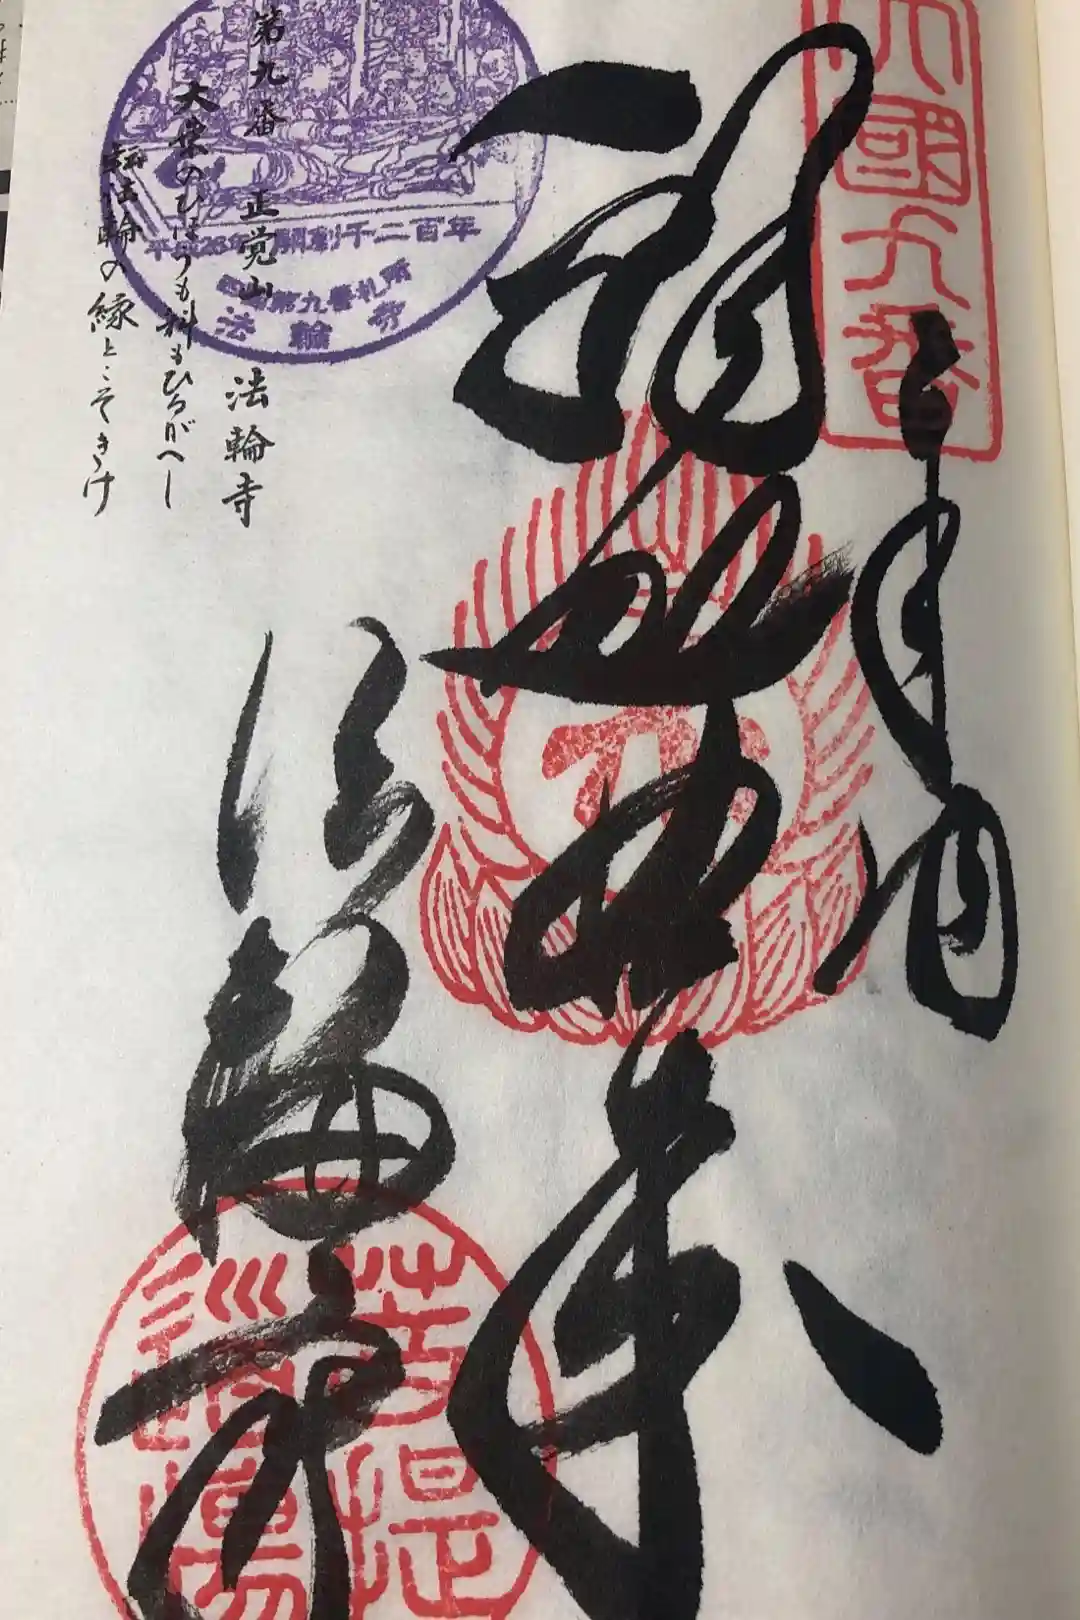 四國九番
奉納
釈迦如来
法輪寺
第九番 正覚山 法輪寺
大乗のひほうも科もひるがへし
転法輪の縁とこそきけ
平成26年 開創千二百年
四国第九番札所
法輪寺
菩提
道場